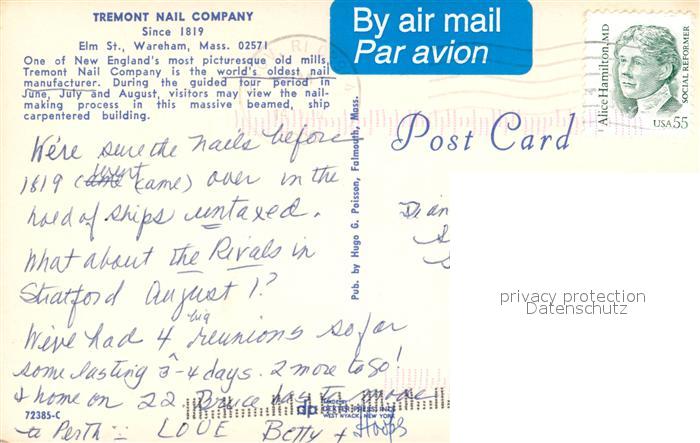 TREMONT NAIL COMPANY
Since 1819
Elm St., Wareham, Mass. 02571
One of New England's most picturesque old mills,
Tremont Nail Company is the world's oldest nail
manufacturer. During the guided tour period in
June, July and August, visitors may view the nail-
making process in this massive beamed, ship
carpentered building.
By air mail
Par avion
Alice Hamilton, MD
SOCIAL REFORMER
USA 55
Post Card
We're sure the nails before
1819 went (came) over in the
hold of ships untaxed.
What about the Rivals in
Stratford August 1?
We've had 4 big reunions so far
some lasting 3-4 days. 2 more to go!
& home on 22. Bruce has to move
to Perth LOVE Betty + Hoops
Pub. by Hugo G. Poisson, Falmouth, Mass.
Dian
72385-C
dp
MADE BY
DEXTER PRESS, INC.
WEST NYACK, NEW YORK
privacy protection
Datenschutz